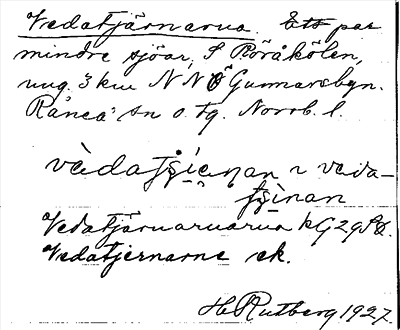 Vedatjärnarna. Ett par
mindre sjöar, S Röråkölen,
ung. 3 km NNÖ Gunnarsbyn.
Råneå sn o. tg. Norrb. l.
vèdatjsienan ~ veda-
tjsìnan
Vedatjärnarnarna kG29SÖ.
Vedatjernarne ek.
H. Rutberg 1927.